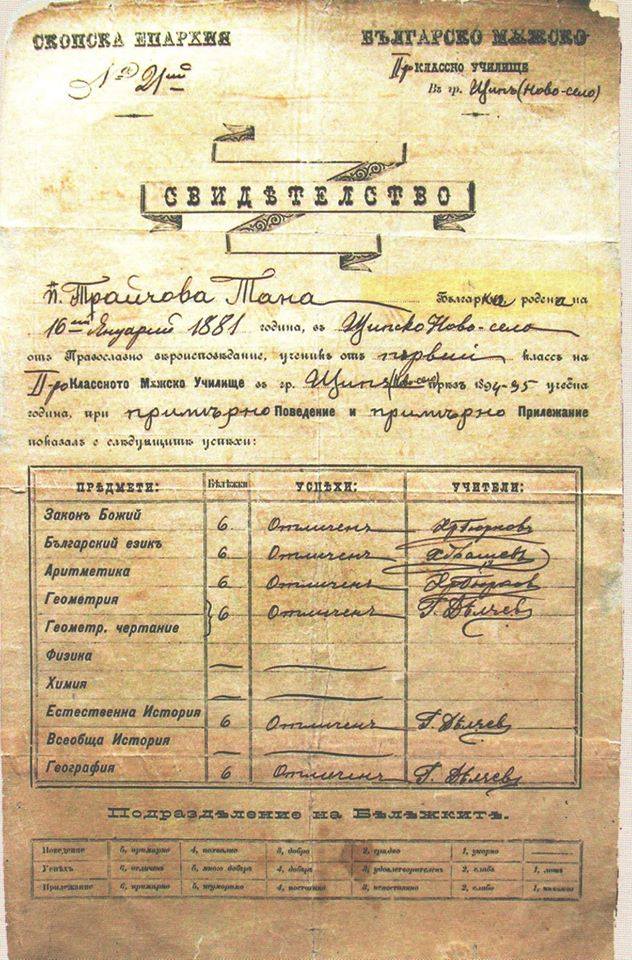 СКОПСКА ЕПАРХИЯ
БЪЛГАРСКО МѪЖСКО
№ 21ий
II-ро КЛАССНО УЧИЛИЩЕ
Въ гр. Щипъ (Ново-село)
СВИДѢТЕЛСТВО
Трайчова Тана Българка родена на
16ий Януарий 1881 година, въ Щипско Ново-село
отъ Православно вѣроисповѣдание, ученикъ отъ първий классъ на
II-ро Классното Мѫжско Училище въ гр. Щипъ (Ново-село) прѣзъ 1894-95 учебна
година, при примѣрно Поведение и примѣрно Прилежание
показалъ е слѣдующитѣ успѣхи:
ПРѢДМЕТИ: Бѣлѣжки УСПѢХИ: УЧИТЕЛИ:
Законъ Божий 6 Отличенъ
Българский езикъ 6 Отличенъ
Аритметика 6 Отличенъ
Геометрия 6 Отличенъ Г. Дѣлчев
Геометр. чертание
Физика
Химия
Естественна История 6 Отличенъ Г. Дѣлчев
Всеобща История
География 6 Отличенъ Г. Дѣлчев
Подраздѣление на Бѣлѣжкитѣ.
Поведение 6, примѣрно 4, похвално 3, добро 2, средно 1, укорно
Успѣхъ 6, отличенъ 5, много добъръ 4, добъръ 3, удовлетворителенъ 2, слабъ 1, лошъ
Прилежание 6, примѣрно 5, 4, постоянно 3, непостоянно 2, слабо 1, никакво